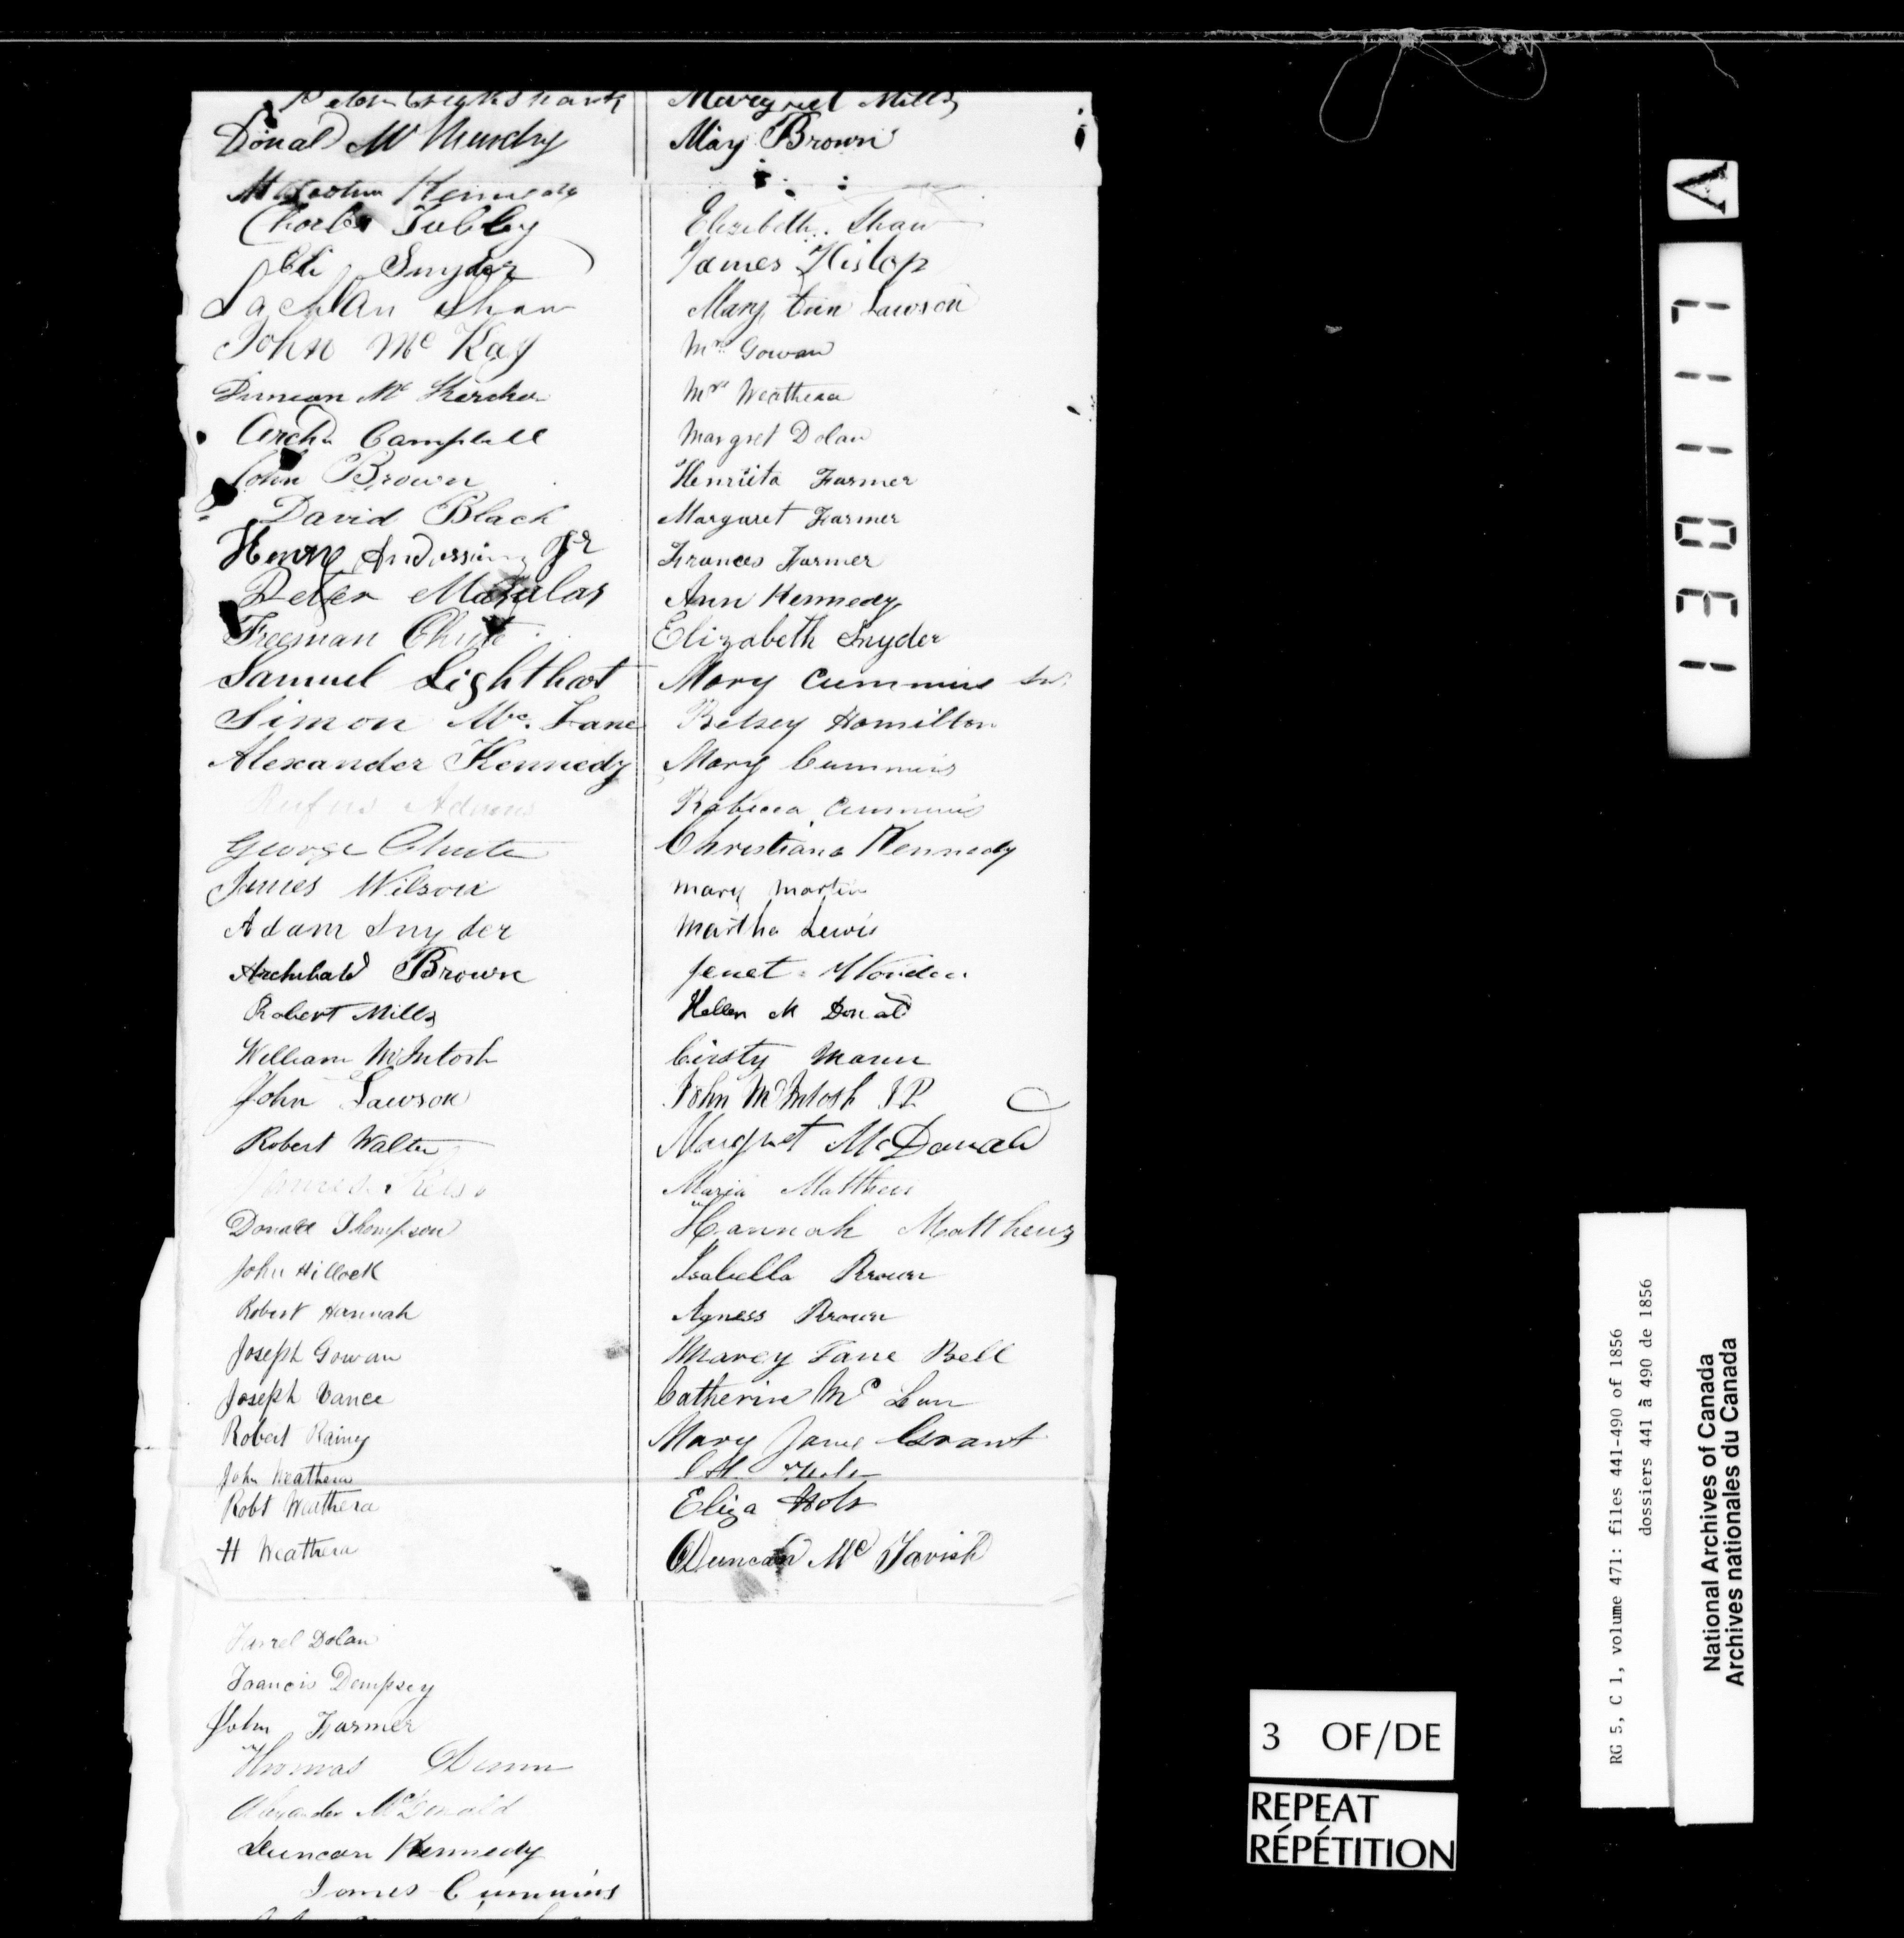 Peter Cruikshank
Donald Mc Murchy
Malcolm Kennedy
Charles Tubby
Eli Snyder
Lachlan Shaw
John Mc Kay
Duncan Mc Kercher
Archd Campbell
John Brown
David Black
Henry Anderson Jr
Peter
Freeman Chute
Samuel Lighthart
Simon Mc. Lane
Alexander Kennedy
Rufus Adams
George Chute
James Wilson
Adam Snyder
Archibald Brown
Robert Mills
William McIntosh
John Lawson
Robert Walter
James Kelso
Donald Thompson
John Hillock
Robert Hannah
Joseph Gowan
Joseph Vance
Robert Rainey
John Weathera
Robt Weathera
H Weathera
Farrel Dolan
Francis Dempsey
John Farmer
Thomas Dunn
Alexander McDonald
Duncan Kennedy
James Cummins
Margret Mills
Mary Brown
Elizibeth Shaw
James Hislop
Mary Ann Lawson
Mrs Gowan
Mrs Weathera
Margret Dolan
Henriita Farmer
Margaret Farmer
Frances Farmer
Ann Kennedy
Elizabeth Snyder
Mary Cummins Sr.
Betsey Hamilton
Mary Cummins
Rabecca Cummins
Christiana Kennedy
Mary Martin
Martha Lewis
Jenet
Hellen Mc Donald
Cirsty Mann
John McIntosh J.P.
Margret McDonald
Maria Matthews
Hannah Matthews
Isabella Brown
Agness Brown
Marey Jane Bell
Catherine Mc Lean
Mary Jane Grant
Eliza Holt
Duncan Mc Tavish
A
1 3 0 1 1 7
RG 5, C 1, volume 471: files 441-490 of 1856
dossiers 441 à 490 de 1856
National Archives of Canada
Archives nationales du Canada
3 OF/DE
REPEAT
RÉPÉTITION